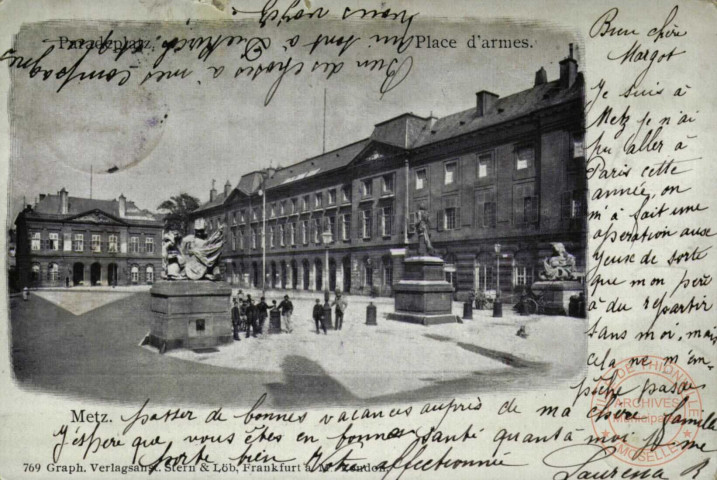 Paradeplatz.
Place d'armes.
Bien des choses à mes compagnes
qui sont à
nous voyez
Bien chère
Margot
Je suis à
Metz je n'ai
pu aller à
Paris cette
année, on
m'a fait une
opération aux
yeux de sorte
que mon père
a du repartir
sans moi, mais
cela ne m'em-
pêche pas de
passer de bonnes vacances auprès de ma chère famille
J'espère que vous êtes en bonne santé quant à moi je me
porte bien Votre affectionnée
Laurena R
Metz.
769 Graph. Verlagsanst. Stern & Löb, Frankfurt a. M.
DE THIONVILLE
ARCHIVES
Municipales
MOSELLE